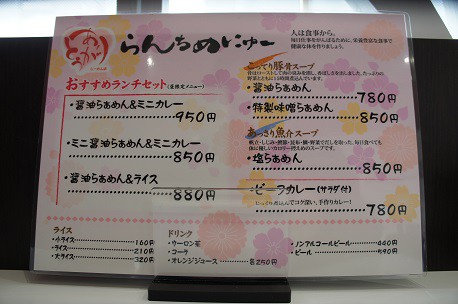 らんちめにゅー
人は食事から。
毎日仕事をがんばるために、栄養豊富な食事で
健康な体を作りましょう。
おすすめランチセット(昼限定メニュー)
・醤油らぁめん&ミニカレー
950円
・ミニ醤油らぁめん&ミニカレー
850円
・醤油らぁめん&ライス
880円
こってり豚骨スープ
・醤油らぁめん
780円
・特製味噌らぁめん
850円
あっさり魚介スープ
・塩らぁめん
850円
・ビーフカレー(サラダ付)
じっくり煮込んでコク深い、手作りカレー!
780円
ライス
・小ライス 160円
・ライス 210円
・大ライス 320円
ドリンク
・ウーロン茶
・コーラ
・オレンジジュース 各250円
・ノンアルコールビール 440円
・ビール 590円